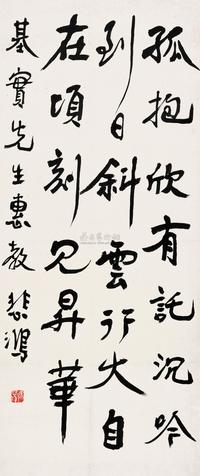 孤抱欣有託沉吟
到日斜雲行火自
在頃刻見昇華
基實先生惠教 悲鴻